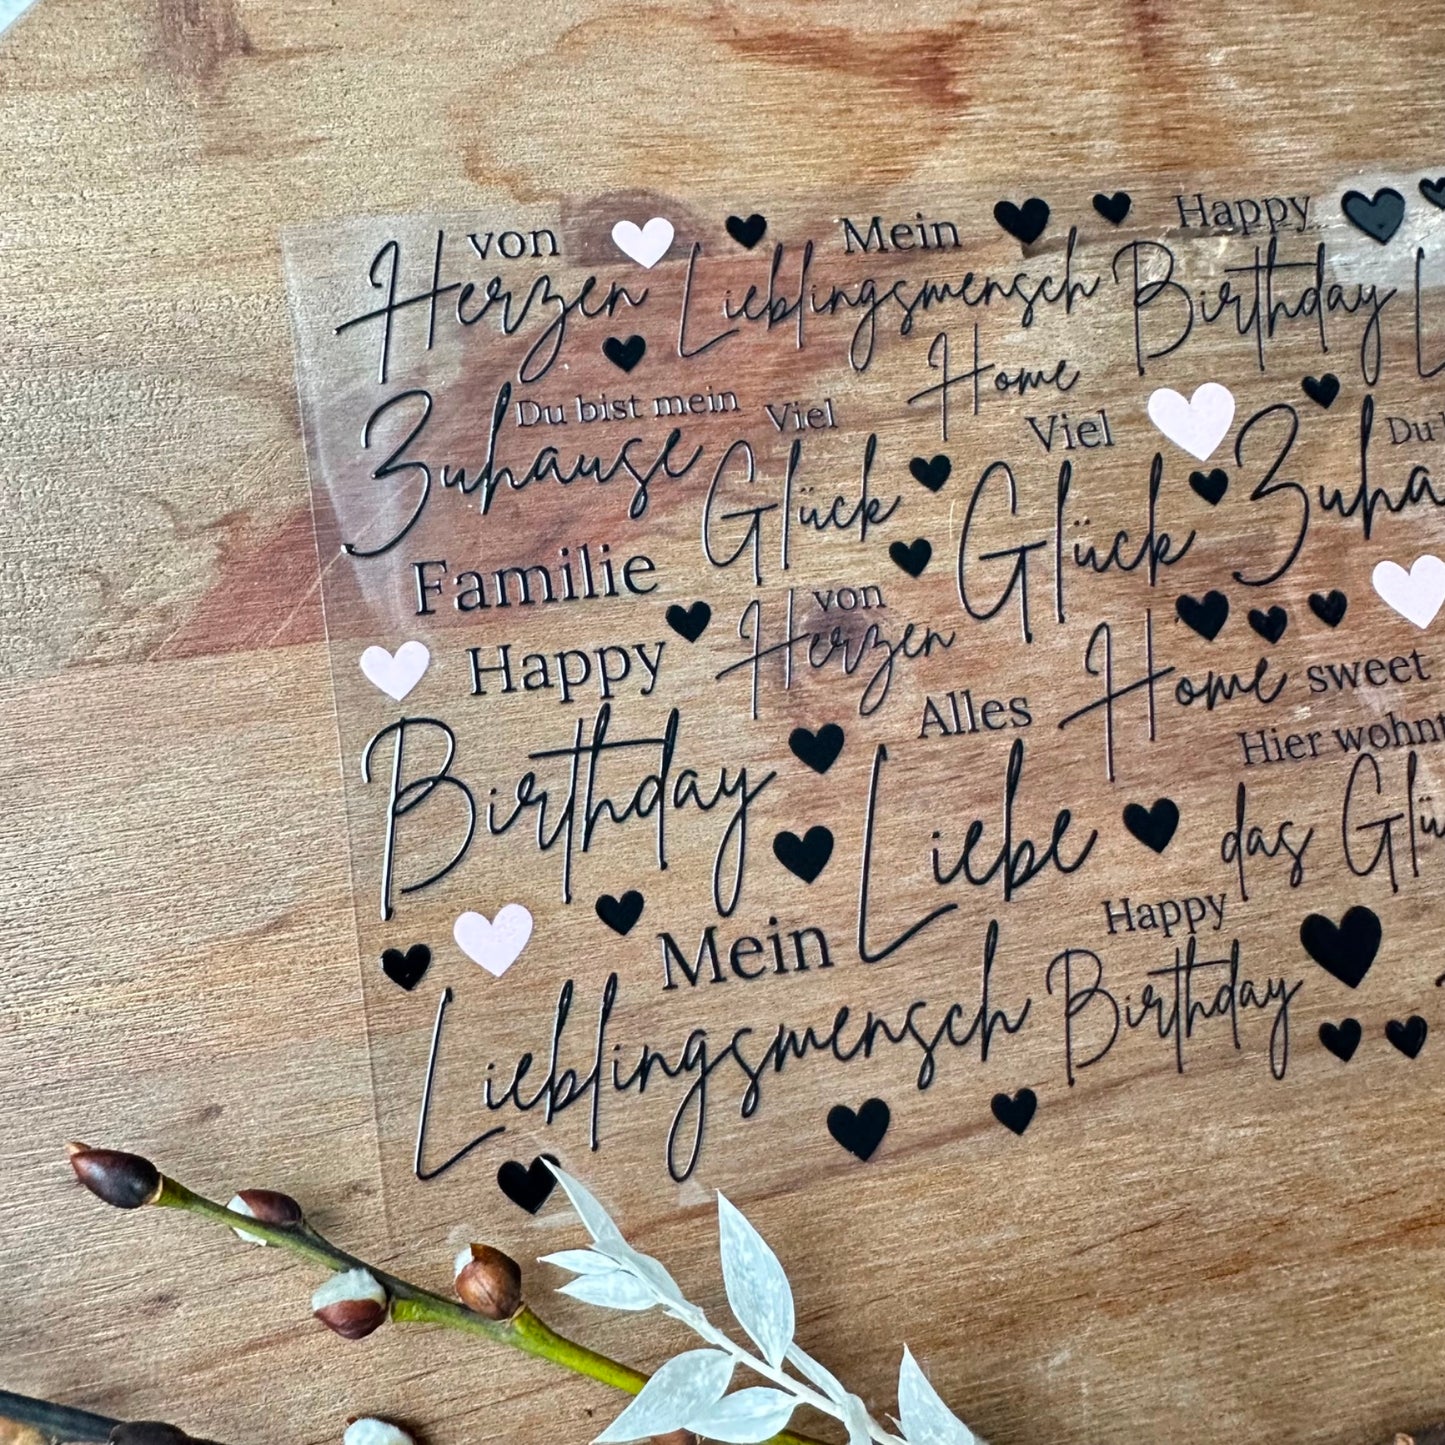 von
Herzen
Mein
Lieblingsmensch
Happy
Birthday
Home
Du bist mein
Zuhause
Viel
Glück
Viel
Glück
Du
Zuha
Familie
Happy
Birthday
von
Herzen
Alles
Liebe
Home sweet
Hier wohnt
das Glü
Mein
Lieblingsmensch
Happy
Birthday